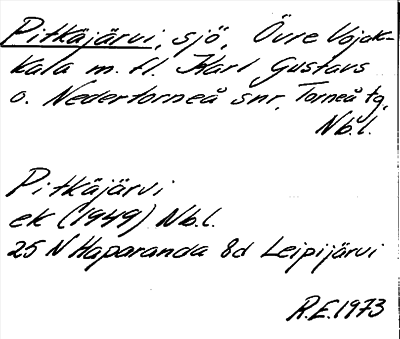 Pitkäjärvi, sjö, Övre Vojak-
kala m. fl. Karl Gustavs
o. Nedertorneå snr, Torneå tg,
Nb.l.
Pitkäjärvi
ek (1949) Nb.l.
25 N Haparanda 8d Leipijärvi
R.E. 1973